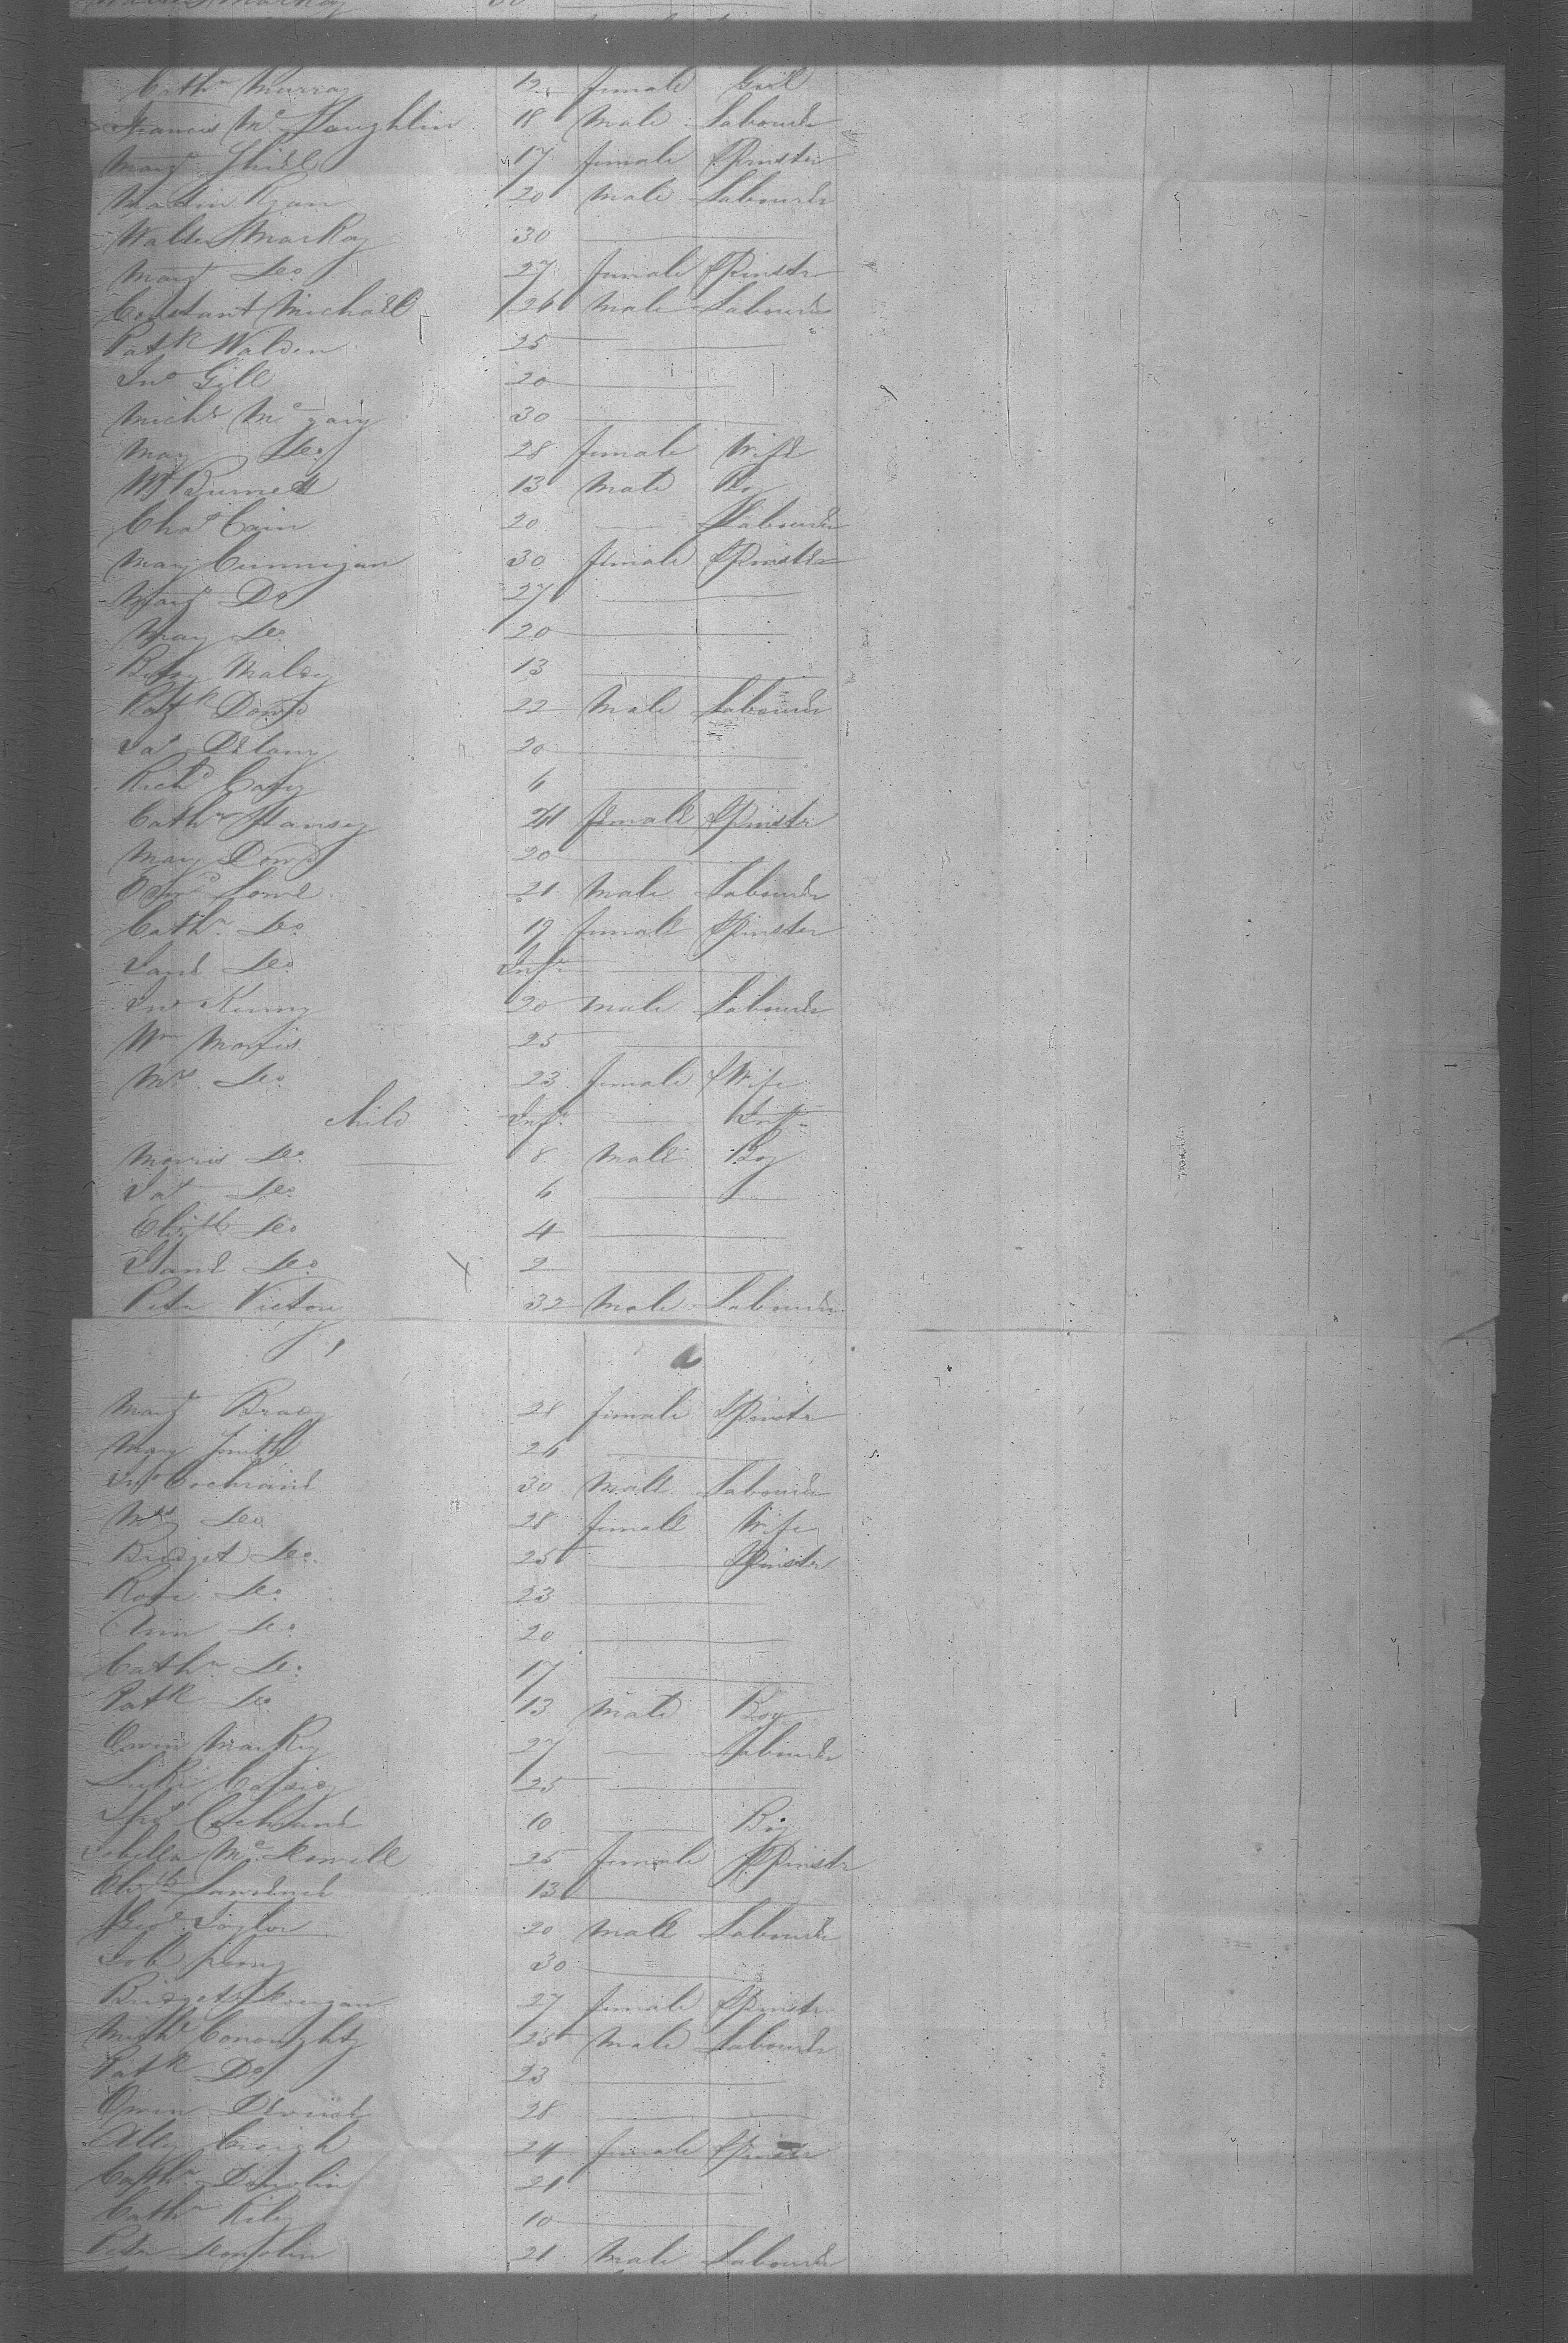 Cathn Murray 12 female Girl
Francis Mc Laughlin 18 Male Labourer
Margt 17 female Spinster
Martin Ryan 20 Male Labourer
Walter Mackay 30
Margt Do 27 female Spinstr
Constant Michall 26 Male Labourer
Patk Walden 25
Jno Gill 20
Michl Mc 30
Mary Do 28 female Wife
Burnett 13 Male Boy
Chas Cain 20 Labourer
Mary Cunnigan 30 female Spinster
Margt Do 27
Mary Do 20
Betsy 13
Patk Dowd 22 Male Labourer
Jas Delany 20
Richd 6
Cathn female Spinstr
Mary Dowd 20
Lowe 21 Male Labourer
Cathn Do 19 female Spinster
Jane Do Inft
Jno Kenny 20 Male Labourer
Wm Morris 25
Mrs Do 23 female Wife
Child Inft Inft
Morris Do 8 Male Boy
Pat Do 6
Elizth Do 4
Jane Do 2
Peter Victory 32 Male Labourer
Margt Brady 21 female Spinstr
Mary Smith 26
Jno Cochrane 30 Male Labourer
Do 28 female Wife
Bridget Do 25 Spinster
Rose Do 23
Ann Do 20
Cathn Do 17
Patk Do 13 Male Boy
Owen Mackey 27 Labourer
Luke Cassidy 25
Cochrane 10 Boy
Isbella Mc 25 female Spinstr
Elizth 13
Geoe Taylor 20 Male Labourer
Job 30
Bridget 27 female Spinstr
Michl Conoughty 25 Male Labourer
Patk Do 23
Owen Devine 28
Creigh 24 female Spinstr
Cathn Donolin 21
Cathn Riley 10
Peter Donolin 21 Male Labourer